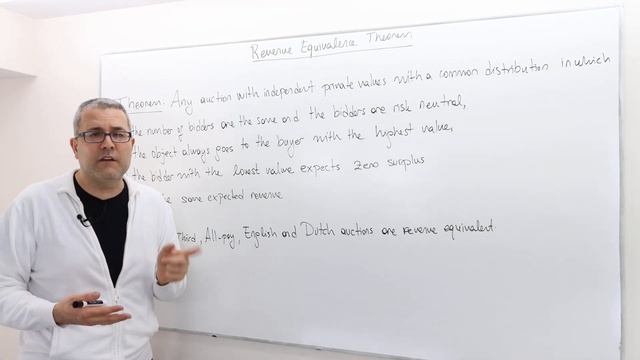 Revenue Equivalence Theorem
Theorem. Any auction with independent private values with a common distribution in which
the number of bidders are the same and the bidders are risk neutral,
the object always goes to the buyer with the highest value,
the bidder with the lowest value expects zero surplus
same expected revenue
Third, All-pay, English and Dutch auctions are revenue equivalent.